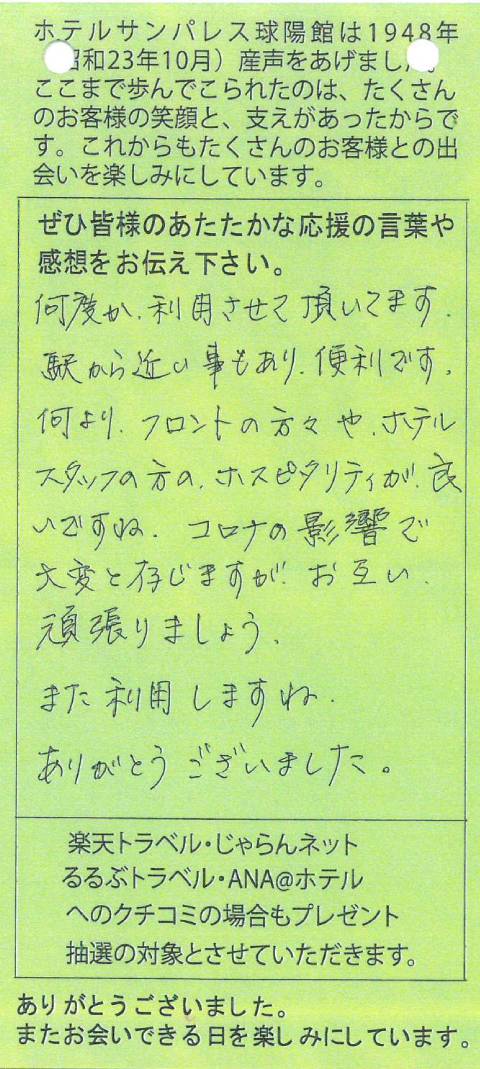 ホテルサンパレス球陽館は1948年
昭和23年10月）産声をあげました。
ここまで歩んでこられたのは、たくさん
のお客様の笑顔と、支えがあったからで
す。これからもたくさんのお客様との出
会いを楽しみにしています。
ぜひ皆様のあたたかな応援の言葉や
感想をお伝え下さい。
何度か、利用させて頂いてます.
駅から近い事もあり、便利です。
何より、フロントの方々や、ホテル
スタッフの方の、ホスピタリティが、良
いですね. コロナの影響で
大変と存じますが お互い、
頑張りましょう、
また利用しますね.
ありがとうございました。
楽天トラベル・じゃらんネット
るるぶトラベル・ANA@ホテル
へのクチコミの場合もプレゼント
抽選の対象とさせていただきます。
ありがとうございました。
またお会いできる日を楽しみにしています。